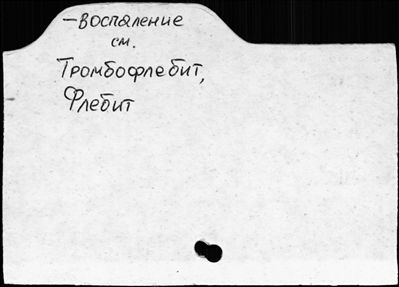 -воспаление
см.
Тромбофлебит,
Флебит